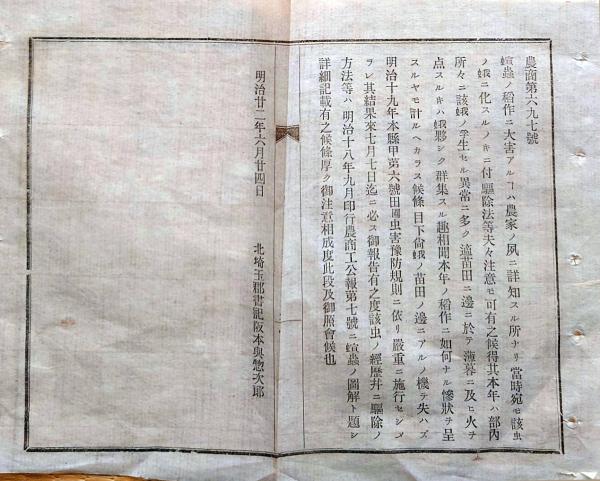 農商第六九七號
螟蟲ノ稻作ニ大害アルヿハ農家ノ夙ニ詳知スル所ナリ當時宛モ該虫
ノ蛾ニ化スルノキニ付驅除法等夫々注意モ可有之候得共本年ハ部內
所々ニ該蛾ノ孚生セル異常ニ多ク適苗田ニ邊ニ於テ薄暮ニ及ヒ火ヲ
点スルキハ蛾夥シク群集スル趣相聞本年ノ稻作ニ如何ナル慘狀ヲ呈
スルヤモ計ルヘカラス候條目下尙蛾ノ苗田ノ邊ニアルノ機ヲ失ハズ
明治十九年本縣甲第六號田圃虫害豫防規則ニ依リ嚴重ニ施行セシメ
ラレ其結果來七月七日迄ニ必ス御報告有之度該虫ノ經歷幷ニ驅除ノ
方法等ハ明治十八年九月印行農商工公報第七號ニ螟蟲ノ圖解ト題シ
詳細記載有之候條厚ク御注意相成度此段及御照會候也
明治廿二年六月廿四日
北埼玉郡書記阪本與惣次郎